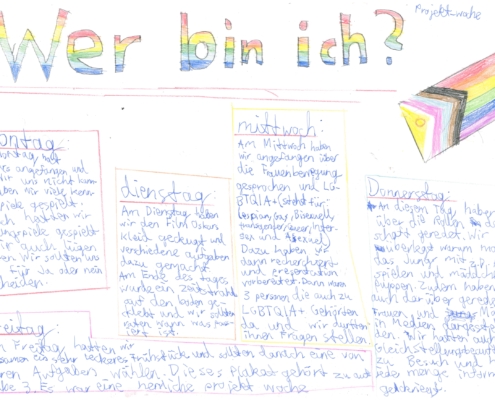 Wer bin ich?
Projektwohe
ontag:
ontag hat
angefangen und
Wir uns nicht kann
ben wir viel kenn
spiele gespielt.
ch hatten wir
spiele gespielt
ir auch lügen
en. Wir sollten uns
Für Ja oder nein
heiden.
dienstag:
Am Dienstag haben
wir den Film Oskars
Kleid geckugt und
verschiedene aufgaben
dazu gemacht.
Am Ende des tages
wurde ein
auf den boden ge-
klebt und wir sollten
wann was pas-
mittwoch:
Am Mittwoch haben
wir angefangen über
die Frauenbewegung
gesprochen und LG-
BTQIA+ (steht für:
Lesbian, Gay, Bisexuell,
Inter-
Sex und Asexuell)
Dazu haben wir
dann recherchiert
und präsentation
vorbereitet. Dann waren
3 personen die auch zu
LGBTQIA+ Gehörten
da und wir durften
ihnen Fragen stellen.
Donnerstag:
An diesem Tag haben
über die rollen
geredet. Wir
überlegt warum
das Jungs mit z.B.
spielen und mädchen
puppen. Zudem haben
auch darüber gered
Frauen und Männer
in Medien dargeste
den. Wir hatten auch
Gleichstellungsbeauft
zu Besuch und h
jede menge inform
gekriegt.
reitag:
Freitag hatten wir
samen ein sehr leckeres Frühstück und sollten danach eine von
ren Aufgaben wählen. Dieses Plakat gehört zu auf
abe 3. Es war eine herrliche projekt woche